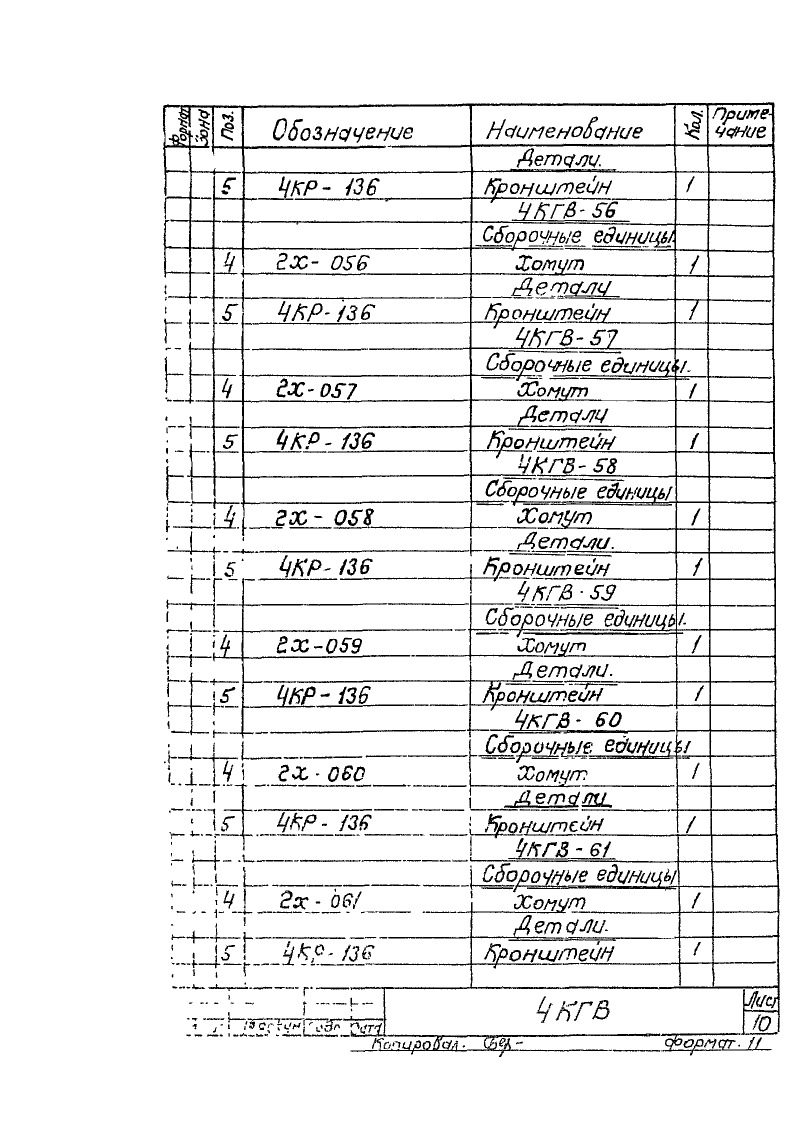 Формат Зона Поз. Обозначение Наименование Кол. Приме-
чание
Детали.
5 4КР - 136 Кронштейн 1
4КГВ - 56
Сборочные единицы.
4 2х - 056 Хомут 1
Детали
5 4КР - 136 Кронштейн 1
4КГВ - 57
Сборочные единицы.
4 2х - 057 Хомут 1
Детали
5 4КР - 136 Кронштейн 1
4КГВ - 58
Сборочные единицы
4 2х - 058 Хомут 1
Детали.
5 4КР - 136 Кронштейн 1
4КГВ - 59
Сборочные единицы.
4 2х - 059 Хомут 1
Детали.
5 4КР - 136 Кронштейн 1
4КГВ - 60
Сборочные единицы
4 2х - 060 Хомут 1
Детали
5 4КР - 136 Кронштейн 1
4КГВ - 61
Сборочные единицы
4 2х - 061 Хомут 1
Детали.
5 4КР - 136 Кронштейн 1
4КГВ
Лист
10
Дата
Копировал. формат. 11